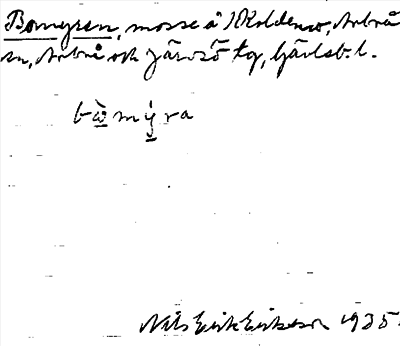 Bomyren, mosse å Koldemo, Arbrå
sn, Arbrå och Järvsö tg, Gävlsb. l.
bàmýra
Nils Erik Eriksson 1935.